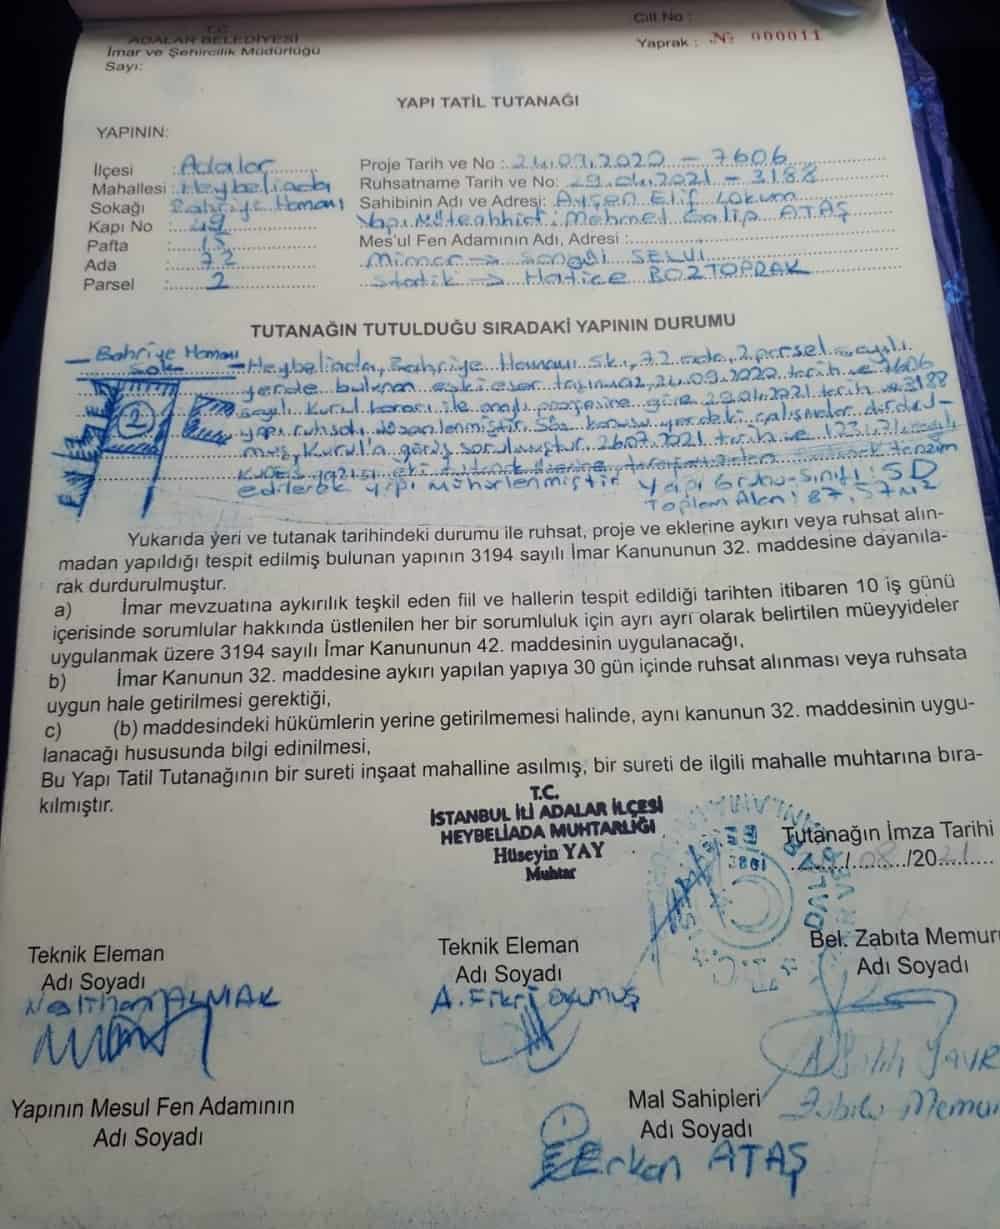 T.C.
ADALAR BELEDİYESİ
İmar ve Şehircilik Müdürlüğü
Sayı:
Cilt No :
Yaprak : № 000011
YAPI TATİL TUTANAĞI
YAPININ:
İlçesi : Adalar
Mahallesi : Heybeliada
Sokağı Bahriye Hamamı
Kapı No : 49
Pafta : 15
Ada : 72
Parsel : 2
Proje Tarih ve No : 24.09.2020 - 7606
Ruhsatname Tarih ve No: 29.04.2021 - 3188
Sahibinin Adı ve Adresi: Ayşen Elif
Yapı Müteahhidi: Mehmet Galip ATAŞ
Mes'ul Fen Adamının Adı, Adresi :
Mimar → Songül SELVİ
Statik → Hatice BOZTOPRAK
TUTANAĞIN TUTULDUĞU SIRADAKİ YAPININ DURUMU
Bahriye Hamamı
Sok
2
- Heybeliada, Bahriye Hamamı sk., 72 ada, 2 parsel sayılı
yerde bulunan eski eser taşınmaz, 24.09.2020 tarih ve 7606
sayılı Kurul kararı ile onaylı projesine göre 29.04.2021 tarih ve 3188
yapı ruhsatı düzenlenmiştir. Söz konusu yerdeki çalışmalar durdurul-
muş, Kurul'a görüş sorulmuştur. 26.07.2021 tarih ve sayılı
KUDEB yazısı eki üzerine, tanzim
edilerek yapı mühürlenmiştir
Yapı Grubu-Sınıfı: 5D
Toplam Alan: 87,57 M2
Yukarıda yeri ve tutanak tarihindeki durumu ile ruhsat, proje ve eklerine aykırı veya ruhsat alın-
madan yapıldığı tespit edilmiş bulunan yapının 3194 sayılı İmar Kanununun 32. maddesine dayanıla-
rak durdurulmuştur.
a) İmar mevzuatına aykırılık teşkil eden fiil ve hallerin tespit edildiği tarihten itibaren 10 iş günü
içerisinde sorumlular hakkında üstlenilen her bir sorumluluk için ayrı ayrı olarak belirtilen müeyyideler
uygulanmak üzere 3194 sayılı İmar Kanununun 42. maddesinin uygulanacağı,
b) İmar Kanunun 32. maddesine aykırı yapılan yapıya 30 gün içinde ruhsat alınması veya ruhsata
uygun hale getirilmesi gerektiği,
c) (b) maddesindeki hükümlerin yerine getirilmemesi halinde, aynı kanunun 32. maddesinin uygu-
lanacağı hususunda bilgi edinilmesi,
Bu Yapı Tatil Tutanağının bir sureti inşaat mahalline asılmış, bir sureti de ilgili mahalle muhtarına bıra-
kılmıştır.
T.C.
İSTANBUL İLİ ADALAR İLÇESİ
HEYBELİADA MUHTARLIĞI
Hüseyin YAY
Muhtar
Tutanağın İmza Tarihi
08/2021
Teknik Eleman
Adı Soyadı
ALMAK
Teknik Eleman
Adı Soyadı
A. Fikri OKUMUŞ
Bel. Zabıta Memuru
Adı Soyadı
Zabıta Memuru
Yapının Mesul Fen Adamının
Adı Soyadı
Mal Sahipleri
Adı Soyadı
Erkan ATAŞ